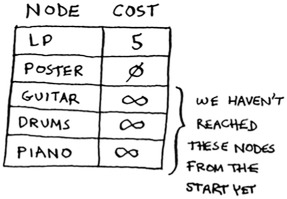 NODE COST
LP 5
POSTER 0
GUITAR ∞
DRUMS ∞
PIANO ∞
WE HAVEN'T
REACHED
THESE NODES
FROM THE
START YET